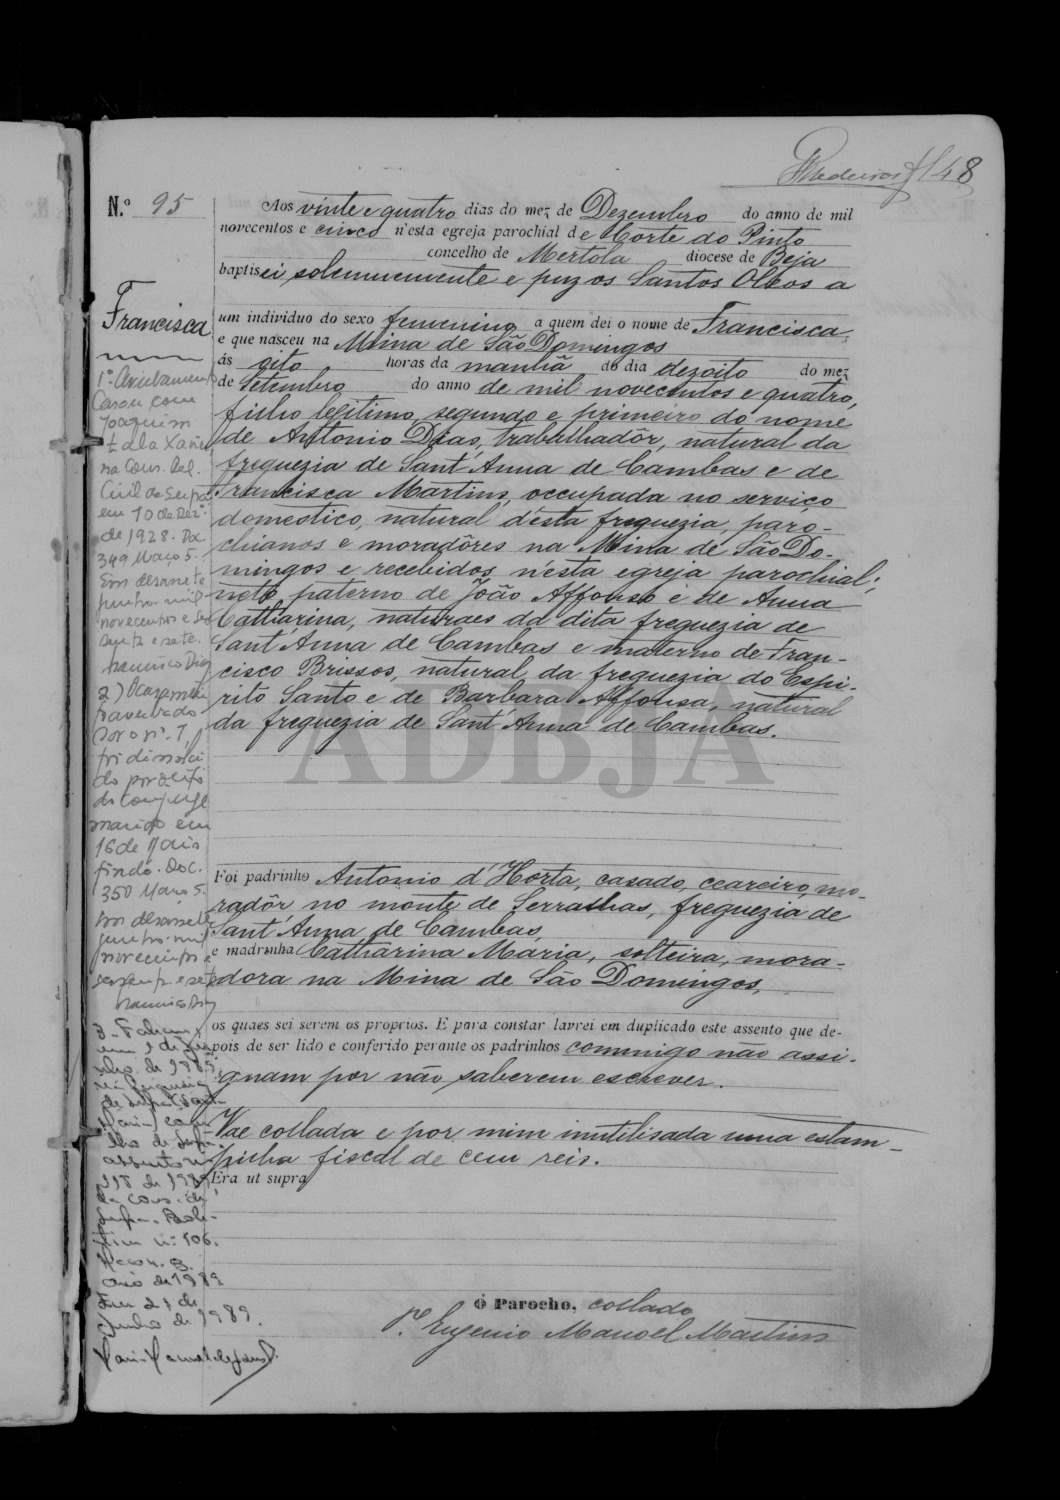 48
N.º 95
Francisca
Aos vinte e quatro dias do mez de Dezembro do anno de mil
novecentos e cinco n'esta egreja parochial de Corte do Pinto
concelho de Mertola diocese de Beja
baptisei solemnemente e puz os Santos Oleos a
um individuo do sexo femenino a quem dei o nome de Francisca,
e que nasceu na Mina de São Domingos
ás oito horas da manhã do dia dezoito do mez
de Setembro do anno de mil novecentos e quatro,
filho legitimo, segundo e primeiro do nome
de Antonio Dias, trabalhadôr, natural da
freguezia de Sant'Anna de Cambas e de
Francisca Martins, occupada no serviço
domestico, natural d'ésta freguezia, paro-
chianos e moradôres na Mina de São Do-
mingos e recebidos n'esta egreja parochial;
neto paterno de João Affonso e de Anna
Catharina, naturaes da dita freguezia de
Sant'Anna de Cambas e materno de Fran-
cisco Brissos, natural da freguezia do Espi-
rito Santo e de Barbara Affonsa, natural
da freguezia de Sant'Anna de Cambas.
ADBJA
Foi padrinho Antonio d'Horta, casado, ceareiro, mo-
radôr no monte de Serralhas, freguezia de
Sant'Anna de Cambas,
e madrinha Catharina Maria, solteira, mora-
dora na Mina de São Domingos,
os quaes sei serem os proprios. E para constar lavrei em duplicado este assento que de-
pois de ser lido e conferido perante os padrinhos commigo não assi-
gnam por não saberem escrever.
Vae collada e por mim inutilisada uma estam-
pilha fiscal de cem reis.
Era ut supra
O Parocho, collado
P.e Eugenio Manoel Martins
1º Averbamento
Casou com
Joaquim
na Cons. do
Civil de Serpa
em 10 de Dez.º
de 1928. Doc.
349 Maço 5.
Em desasete
junho mil
novecentos e ses
senta e sete.
Francisco Dias
2) O casamento
averbado
sob o nº 1,
foi dissolvi
do por óbito
do conjuge
marido em
16 de Maio
findo. Doc.
350 Maço 5.
Em desassete
junho mil
novecentos e
sessenta e sete
Francisco Dias
de 1989
de Serpa
lho de Serpa.
assento nº
218 de 1989
da cons. de
Serpa. Bole-
tim nº 106.
ano de 1989
Em 21 de
Junho de 1989.